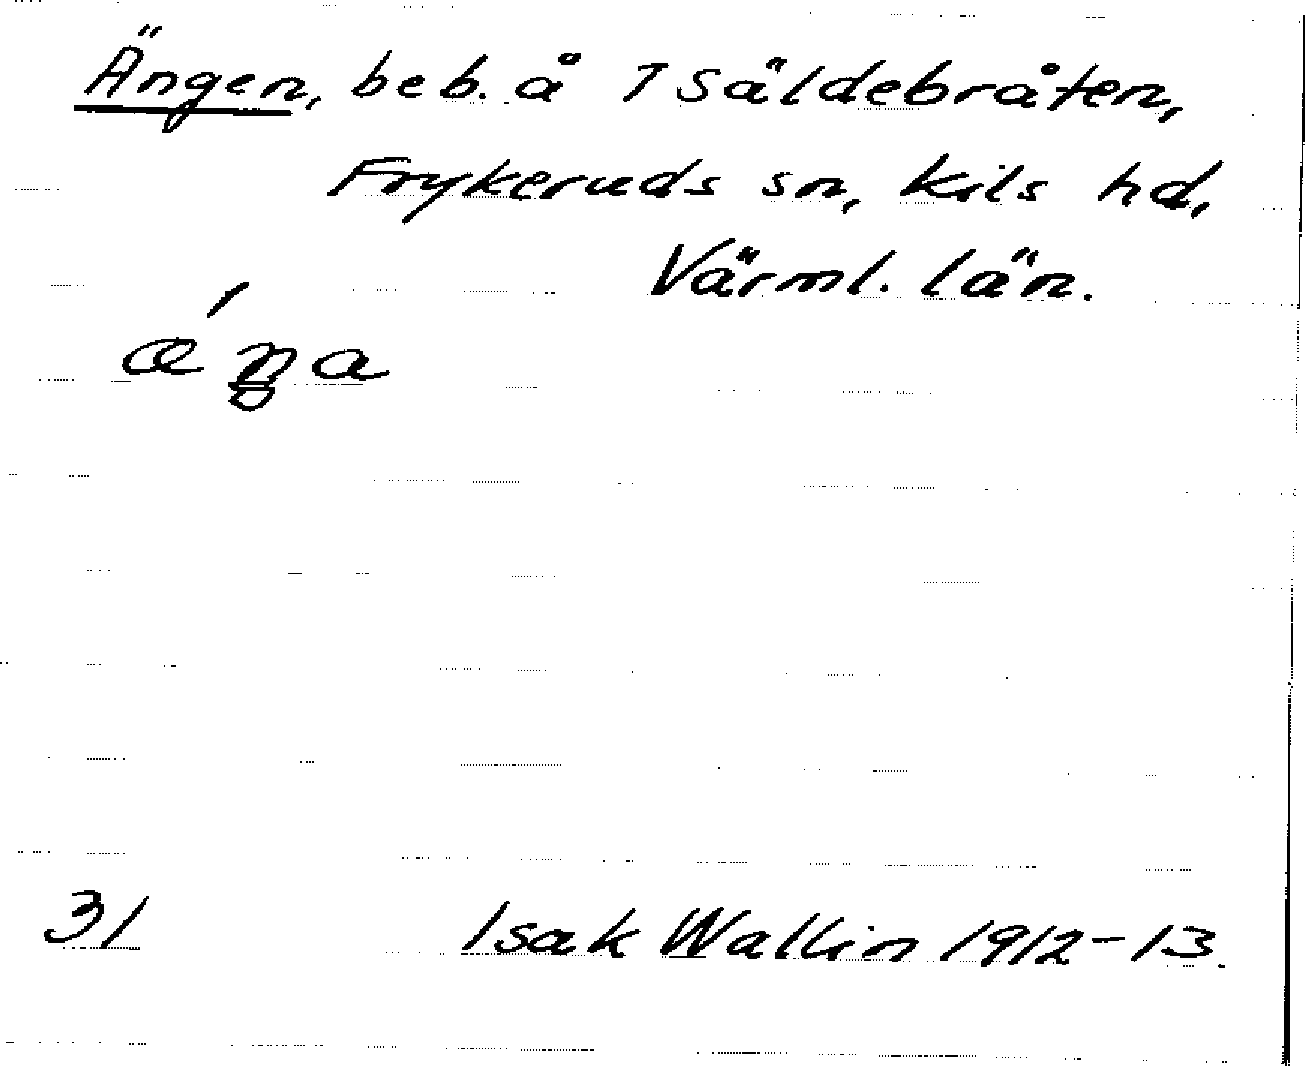 Ängen, beb. å Tsäldebråten,
Frykeruds sn, Kils hd,
Värml. län.
31 Isak Wallin 1912-13.